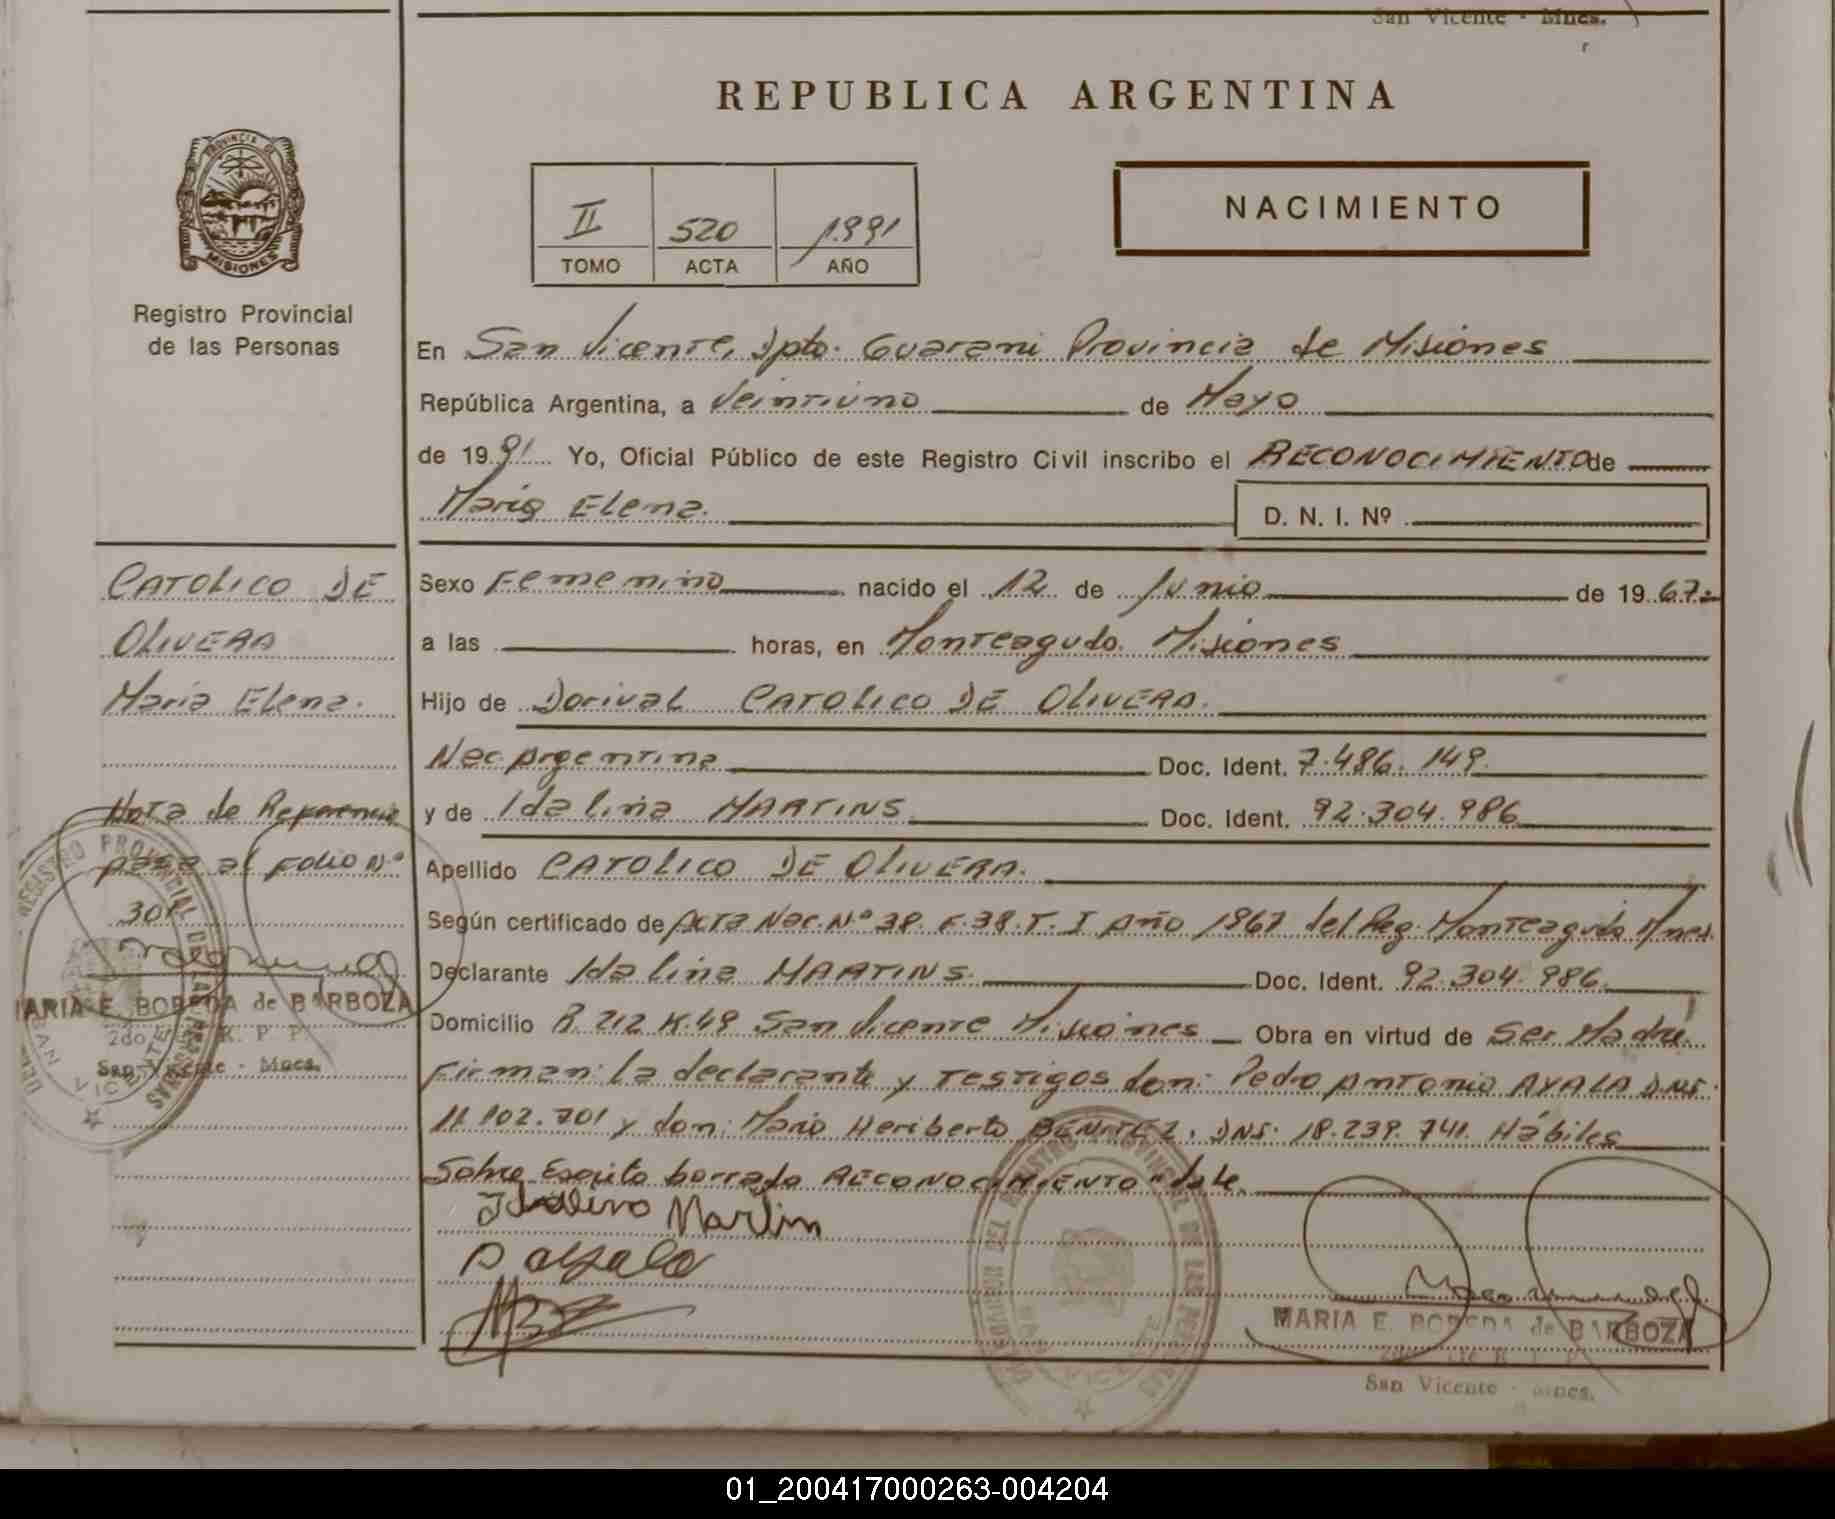 San Vicente - Mnes.
REPUBLICA ARGENTINA
PROVINCIA DE
MISIONES
Registro Provincial
de las Personas
II 520 1.991
TOMO ACTA AÑO
NACIMIENTO
En San Vicente, Dpto. Guarani Provincia de Misiones
República Argentina, a Veintiuno de Mayo
de 1991 Yo, Oficial Público de este Registro Civil inscribo el RECONOCIMIENTO de
Maria Elena.
D. N. I. Nº
CATOLICO DE
OLIVERA
Maria Elena.
Nota de Referencia
pasa al Folio Nº
301
MARIA E. BOBEDA de BARBOZA
2do. R. P. P.
San Vicente - Mnes.
Sexo Femenino nacido el 12 de Junio de 1967.
a las horas, en Monteagudo. Misiones
Hijo de Dorival CATOLICO DE OLIVERA.
Nac Argentina Doc. Ident. 7.486.149.
y de Idalina MARTINS. Doc. Ident. 92.304.986
Apellido CATOLICO DE OLIVERA.
Según certificado de Acta Nac. Nº 38. F. 38. T. I Año 1967 del Reg. Monteagudo Mnes.
Declarante Idalina MARTINS. Doc. Ident. 92.304.986.
Domicilio R. 212 K. 49 San Vicente Misiones Obra en virtud de Ser Madre.
Firman: la declarante y testigos don: Pedro Antonio AYALA DNI.
11.102.701 y don: Mario Heriberto BENITEZ. DNI. 18.239.741. Hábiles
Sobre Escrito borrado RECONOCIMIENTO" Vale.
Idalina Martin
P Ayala
DEL REGISTRO PROVINCIAL DE LAS PERSONAS
SAN VICENTE
MARIA E. BOBEDA de BARBOZA
San Vicente - Mnes.
01_200417000263-004204